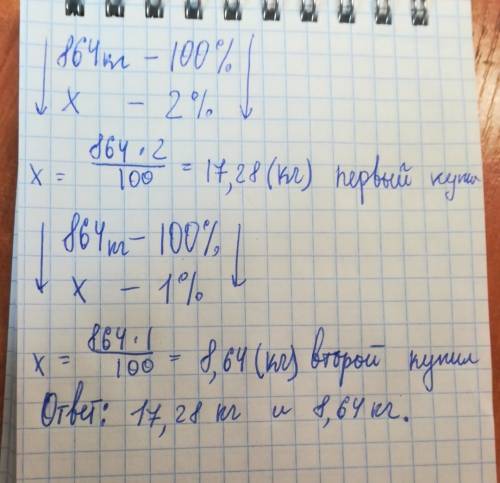 864 кг – 100%
х – 2%
х = 864·2/100 = 17,28 (кг) первый купил
864 кг – 100%
х – 1%
х = 864·1/100 = 8,64 (кг) второй купил
Ответ: 17,28 кг и 8,64 кг.